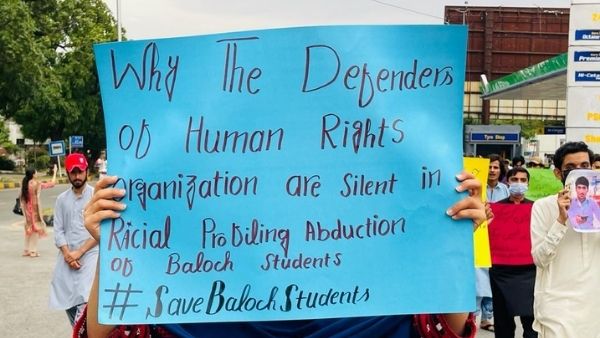 Why The Defenders
of Human Rights
organization are silent in
Ricial Profiling Abduction
of Baloch Students
#SaveBalochStudents
Tyre Shop